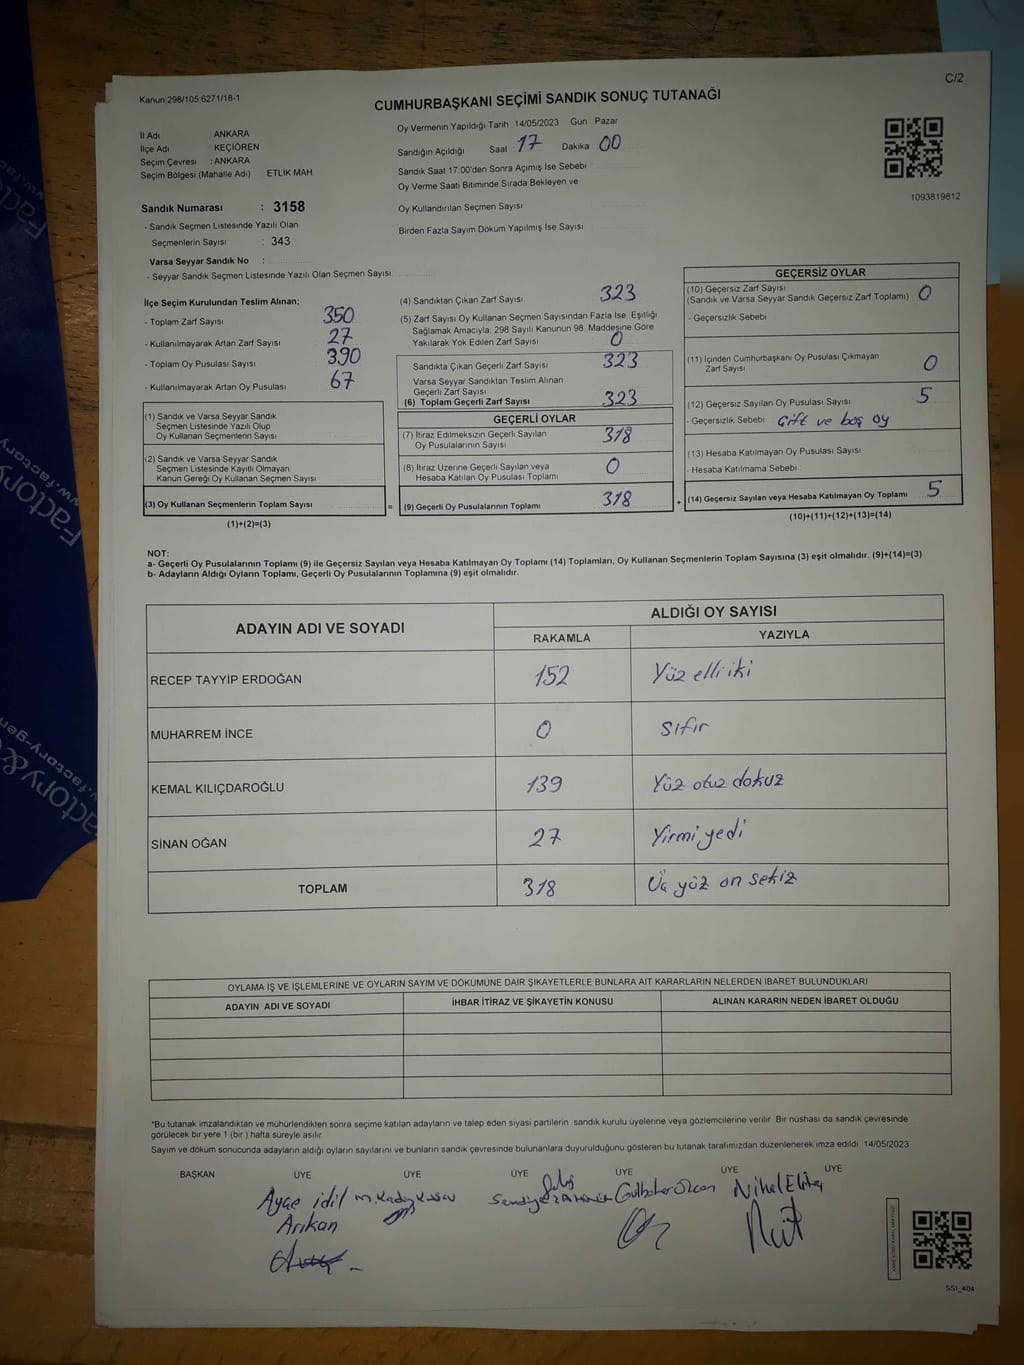 C/2
Kanun:298/105;6271/18-1
CUMHURBAŞKANI SEÇİMİ SANDIK SONUÇ TUTANAĞI
İl Adı ANKARA
İlçe Adı KEÇİÖREN
Seçim Çevresi : ANKARA
Seçim Bölgesi (Mahalle Adı) ETLİK MAH.
Oy Vermenin Yapıldığı Tarih :14/05/2023 Gün : Pazar
Sandığın Açıldığı Saat : 17 Dakika 00
Sandık Saat 17:00'den Sonra Açımış İse Sebebi
Oy Verme Saati Bitiminde Sırada Bekleyen ve
Oy Kullandırılan Seçmen Sayısı
Birden Fazla Sayım Döküm Yapılmış İse Sayısı
1093819812
Sandık Numarası : 3158
- Sandık Seçmen Listesinde Yazılı Olan
Seçmenlerin Sayısı : 343
Varsa Seyyar Sandık No :
- Seyyar Sandık Seçmen Listesinde Yazılı Olan Seçmen Sayısı
İlçe Seçim Kurulundan Teslim Alınan;
- Toplam Zarf Sayısı 350
- Kullanılmayarak Artan Zarf Sayısı 27
- Toplam Oy Pusulası Sayısı 390
- Kullanılmayarak Artan Oy Pusulası 67
(1) Sandık ve Varsa Seyyar Sandık
Seçmen Listesinde Yazılı Olup
Oy Kullanan Seçmenlerin Sayısı
(2) Sandık ve Varsa Seyyar Sandık
Seçmen Listesinde Kayıtlı Olmayan
Kanun Gereği Oy Kullanan Seçmen Sayısı
(3) Oy Kullanan Seçmenlerin Toplam Sayısı =
(1)+(2)=(3)
(4) Sandıktan Çıkan Zarf Sayısı 323
(5) Zarf Sayısı Oy Kullanan Seçmen Sayısından Fazla İse, Eşitliği
Sağlamak Amacıyla; 298 Sayılı Kanunun 98. Maddesine Göre
Yakılarak Yok Edilen Zarf Sayısı 0
Sandıkta Çıkan Geçerli Zarf Sayısı 323
Varsa Seyyar Sandıktan Teslim Alınan
Geçerli Zarf Sayısı
(6) Toplam Geçerli Zarf Sayısı 323
GEÇERLİ OYLAR
(7) İtiraz Edilmeksizin Geçerli Sayılan
Oy Pusulalarının Sayısı 318
(8) İtiraz Üzerine Geçerli Sayılan veya
Hesaba Katılan Oy Pusulası Toplamı 0
(9) Geçerli Oy Pusulalarının Toplamı 318 +
GEÇERSİZ OYLAR
(10) Geçersiz Zarf Sayısı
(Sandık ve Varsa Seyyar Sandık Geçersiz Zarf Toplamı) 0
- Geçersizlik Sebebi
(11) İçinden Cumhurbaşkanı Oy Pusulası Çıkmayan
Zarf Sayısı 0
(12) Geçersiz Sayılan Oy Pusulası Sayısı 5
- Geçersizlik Sebebi Çift ve boş oy
(13) Hesaba Katılmayan Oy Pusulası Sayısı
- Hesaba Katılmama Sebebi
(14) Geçersiz Sayılan veya Hesaba Katılmayan Oy Toplamı 5
(10)+(11)+(12)+(13)=(14)
NOT:
a- Geçerli Oy Pusulalarının Toplamı (9) ile Geçersiz Sayılan veya Hesaba Katılmayan Oy Toplamı (14) Toplamları, Oy Kullanan Seçmenlerin Toplam Sayısına (3) eşit olmalıdır. (9)+(14)=(3)
b- Adayların Aldığı Oyların Toplamı, Geçerli Oy Pusulalarının Toplamına (9) eşit olmalıdır.
ADAYIN ADI VE SOYADI ALDIĞI OY SAYISI
RAKAMLA YAZIYLA
RECEP TAYYİP ERDOĞAN 152 Yüz elli iki
MUHARREM İNCE 0 Sıfır
KEMAL KILIÇDAROĞLU 139 Yüz otuz dokuz
SİNAN OĞAN 27 Yirmi yedi
TOPLAM 318 Üç yüz on sekiz
OYLAMA İŞ VE İŞLEMLERİNE VE OYLARIN SAYIM VE DÖKÜMÜNE DAİR ŞİKAYETLERLE BUNLARA AİT KARARLARIN NELERDEN İBARET BULUNDUKLARI
ADAYIN ADI VE SOYADI İHBAR İTİRAZ VE ŞİKAYETİN KONUSU ALINAN KARARIN NEDEN İBARET OLDUĞU
*Bu tutanak imzalandıktan ve mühürlendikten sonra seçime katılan adayların ve talep eden siyasi partilerin sandık kurulu üyelerine veya gözlemcilerine verilir. Bir nüshası da sandık çevresinde
görülecek bir yere 1 (bir ) hafta süreyle asılır.
Sayım ve döküm sonucunda adayların aldığı oyların sayılarını ve bunların sandık çevresinde bulunanlara duyurulduğunu gösteren bu tutanak tarafımızdan düzenlenerek imza edildi. 14/05/2023
BAŞKAN ÜYE ÜYE ÜYE ÜYE ÜYE ÜYE
Ayşe idil Gülbahar Özcan
Arıkan
SSI_404